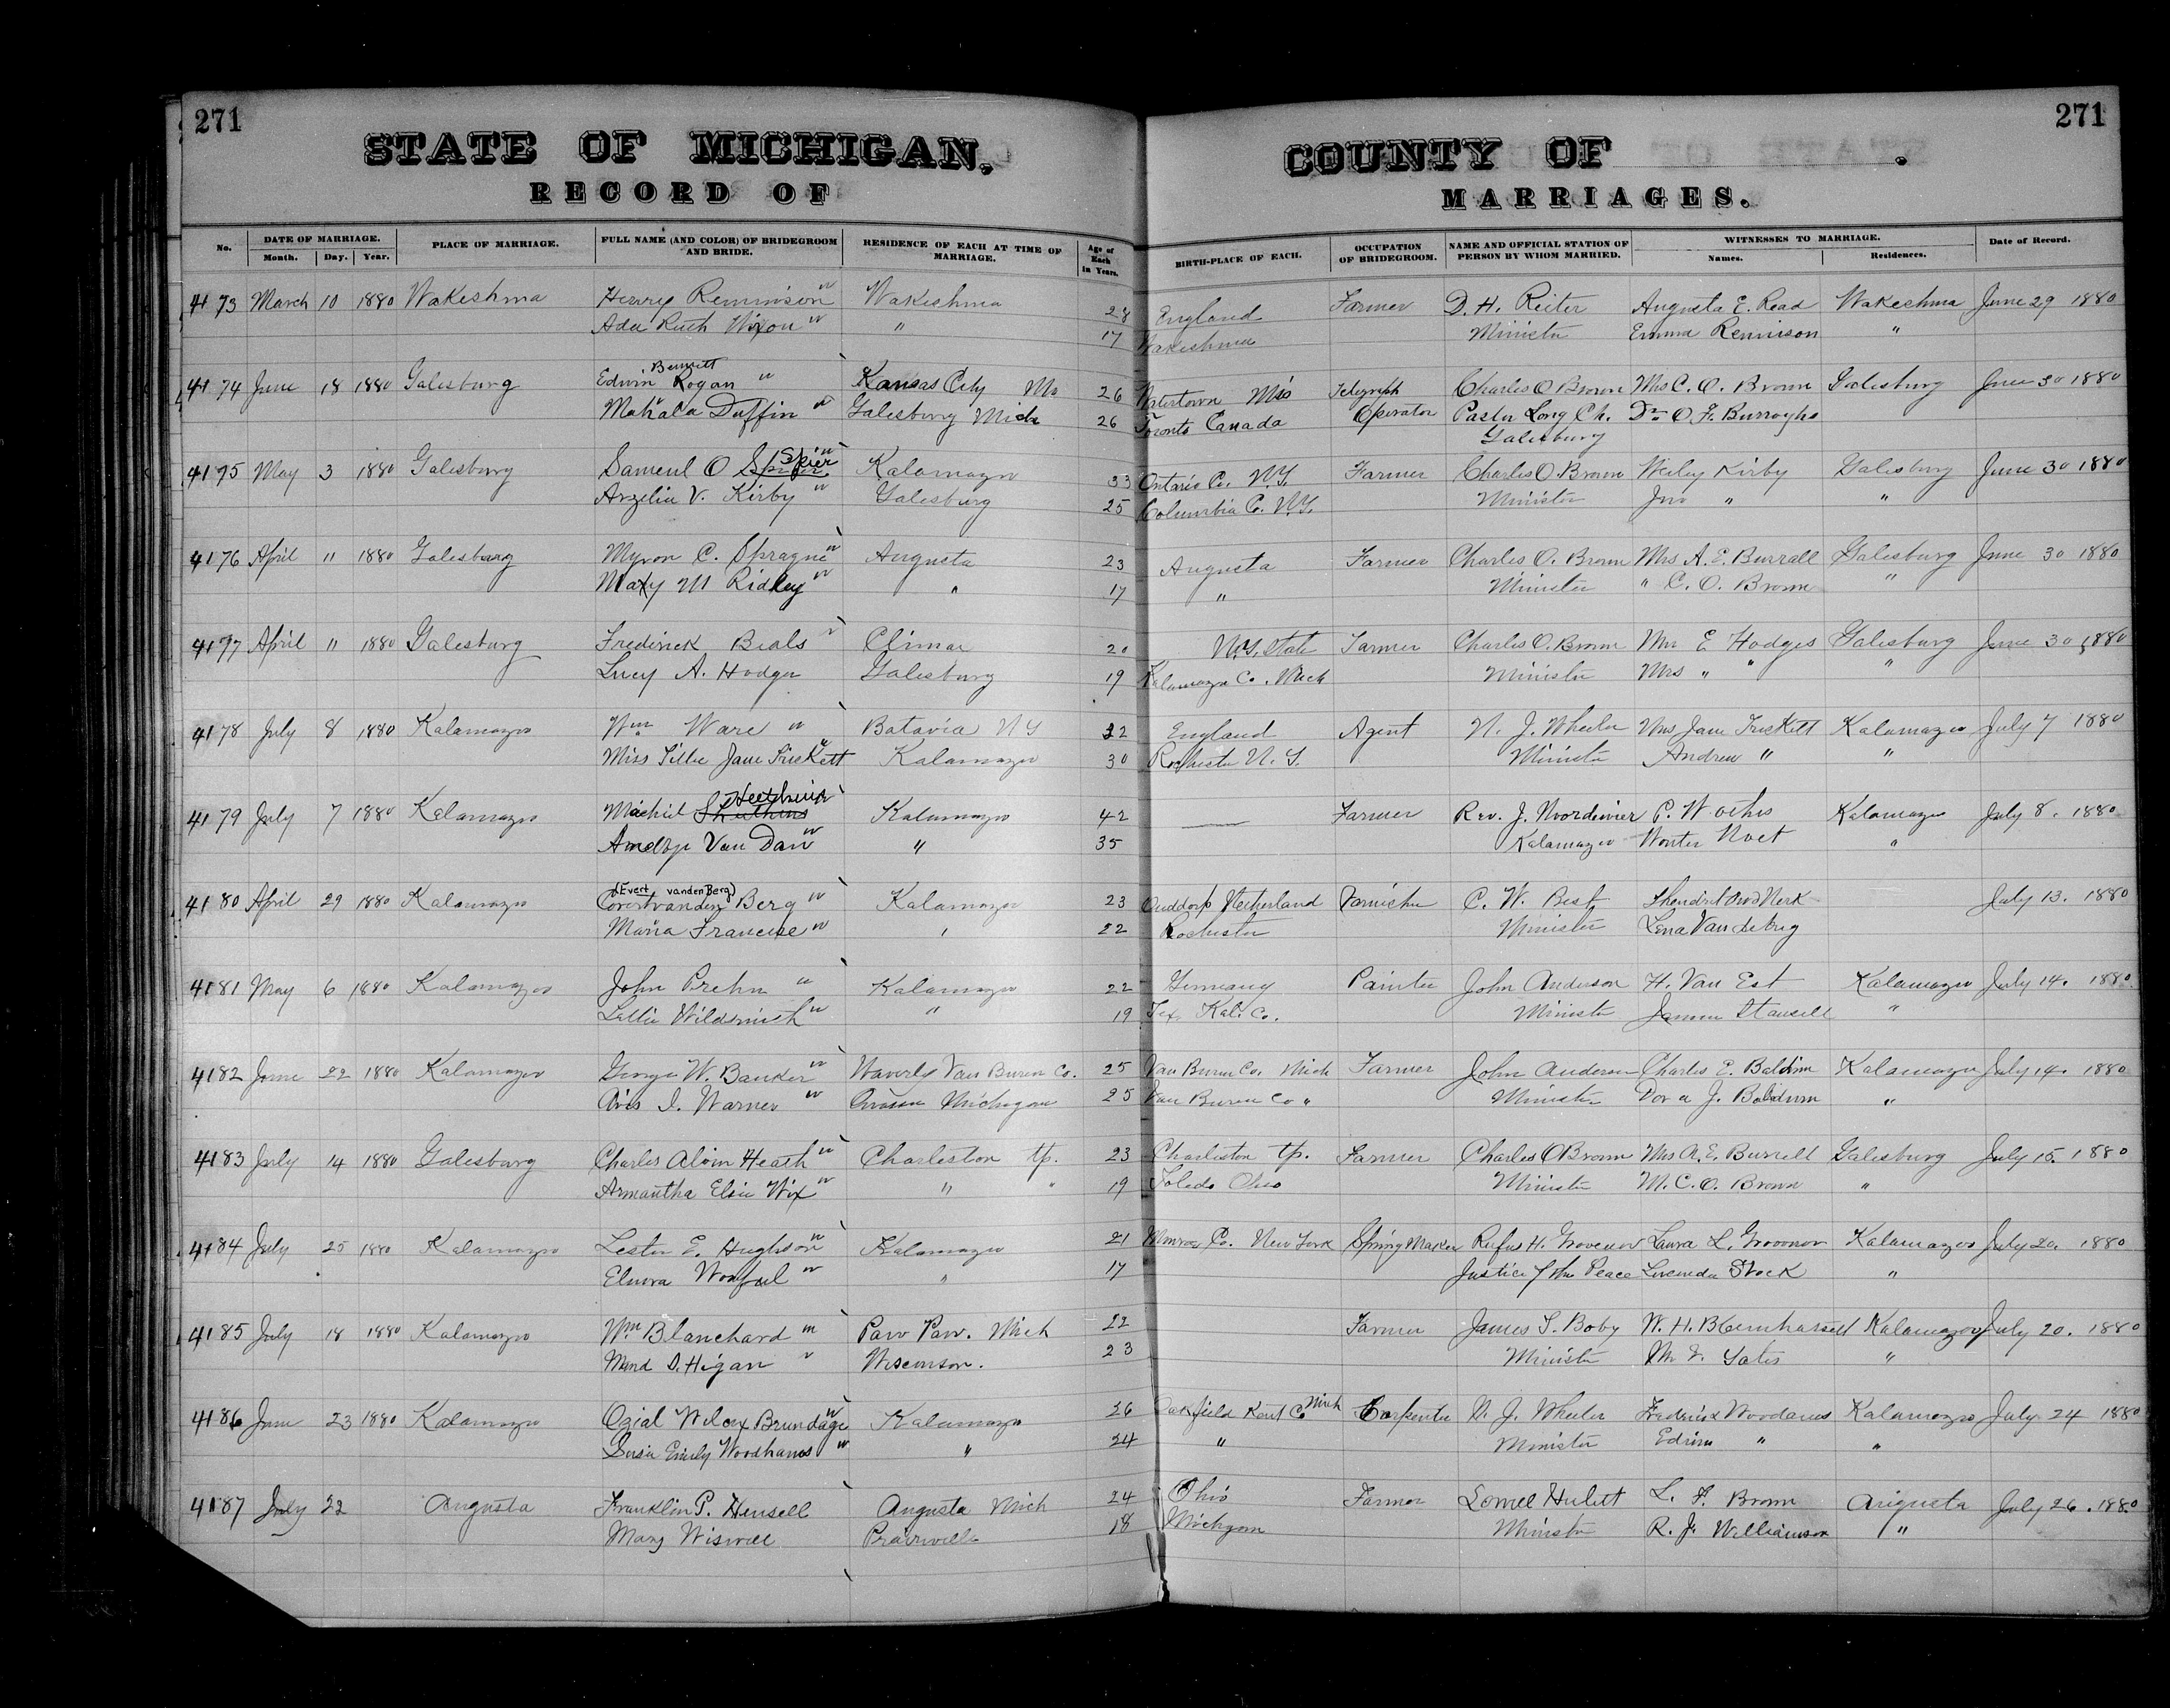 271
STATE OF MICHIGAN.
RECORD OF
271
COUNTY OF .
MARRIAGES.
No. DATE OF MARRIAGE. Month. Day. Year. PLACE OF MARRIAGE. FULL NAME (AND COLOR) OF BRIDEGROOM AND BRIDE. RESIDENCE OF EACH AT TIME OF MARRIAGE. Age of Each in Years. BIRTH-PLACE OF EACH. OCCUPATION OF BRIDEGROOM. NAME AND OFFICIAL STATION OF PERSON BY WHOM MARRIED. WITNESSES TO MARRIAGE. Names. Residences. Date of Record.
4173 March 10 1880 Wakeshma Henry Rennison w Wakeshma 28 England Farmer D. H. Reiter Augusta E. Read Wakeshma June 29 1880
Ada Ruth Nixon w " 17 Wakeshma Minister Emma Rennison "
4174 June 18 1880 Galesburg Edwin Bennett Rogan w Kansas City Mo 26 Watertown Telegraph Charles O Brown Mrs C. O. Brown Galesburg June 30 1880
Mahala Duffin w Galesburg Mich 26 Toronto Canada Operator Pastor Cong Ch. Dr O. F. Burroughs
Galesburg
4175 May 3 1880 Galesburg Samuel O Spier w Kalamazoo 33 Ontario Co. N.Y. Farmer Charles O. Brown Wesley Kirby Galesburg June 30 1880
Arzelia V. Kirby w Galesburg 25 Columbia C. N.Y. Minister Jno " "
4176 April 11 1880 Galesburg Myron C. Sprague w Augusta 23 Augusta Farmer Charles O. Brown Mrs A. E. Burrall Galesburg June 30 1880
Mary M Ridley w " 17 " Minister " C. O. Brown "
4177 April 11 1880 Galesburg Frederick Beals w Climax 20 N.Y. State Farmer Charles O. Brown Mr E Hodges Galesburg June 30 1880
Lucy A. Hodge Galesburg 19 Kalamazoo Co. Mich Minister Mrs " " "
4178 July 8 1880 Kalamazoo Wm Ware w Batavia NY 32 England Agent N. J. Wheeler Mrs Jane Trickett Kalamazoo July 7 1880
Miss Tillie Jane Trickett w Kalamazoo 30 Rochester N. Y. Minister Andrew " "
4179 July 7 1880 Kalamazoo Machiel Kalamazoo 42 Farmer Rev. J. Noordewier Kalamazoo July 8. 1880
Van Dam w " 35 Kalamazoo Wouter Noet "
4180 April 29 1880 Kalamazoo (Evert vanden Berg) Covertvanden Berg w Kalamazoo 23 Ouddorp Netherland C. W. Best July 13. 1880
Maria Francise w " 22 Rochester Minister Lena
4181 May 6 1880 Kalamazoo John Prehn w Kalamazoo 22 Germany Painter John Anderson H. Van Est Kalamazoo July 14. 1880
Lettie Wildsmith w " 19 Tex. Kal. Co. Minister Stansell "
4182 June 22 1880 Kalamazoo George W. Banker w Waverly Van Buren Co. 25 Van Buren Co. Mich Farmer John Anderson Charles E. Baldwin Kalamazoo July 14. 1880
Avis I. Warner w Michigan 25 Van Buren Co " Minister Dora J. Baldwin "
4183 July 14 1880 Galesburg Charles Alvin Heath w Charleston tp. 23 Charleston tp. Farmer Charles O Brown Mrs A. E. Burrell Galesburg July 15. 1880
Armantha Elsie Wix w " " 19 Toledo Ohio Minister M. C. O. Brown "
4184 July 25 1880 Kalamazoo Lester E. Hughson w Kalamazoo 21 Monroe Co. New York Spring Maker Rufus H. Grovenor Laura L. Grovenor Kalamazoo July 20. 1880
Elnora w " 17 Justice of the Peace Lucinda Stock "
4185 July 18 1880 Kalamazoo Wm Blanchard Paw Paw. Mich 22 Farmer James T. Boby W. H. Kalamazoo July 20. 1880
D. Higan Wisconson. 23 Minister Yates "
4186 June 23 1880 Kalamazoo Ozial Wilcox Brundage w Kalamazoo 26 Oakfield Kent Co Mich Carpenter N. J. Wheeler Kalamazoo July 24 1880
Susie Emily Woodhams w " 24 " Minister Edwin " "
4187 July 22 Augusta Franklin P. Hensell Augusta Mich 24 Ohio Farmer Hulett L. F. Brown Augusta July 26. 1880
Mary Wiswell Prairiville 18 Michigan Minister R. J. Williamson "